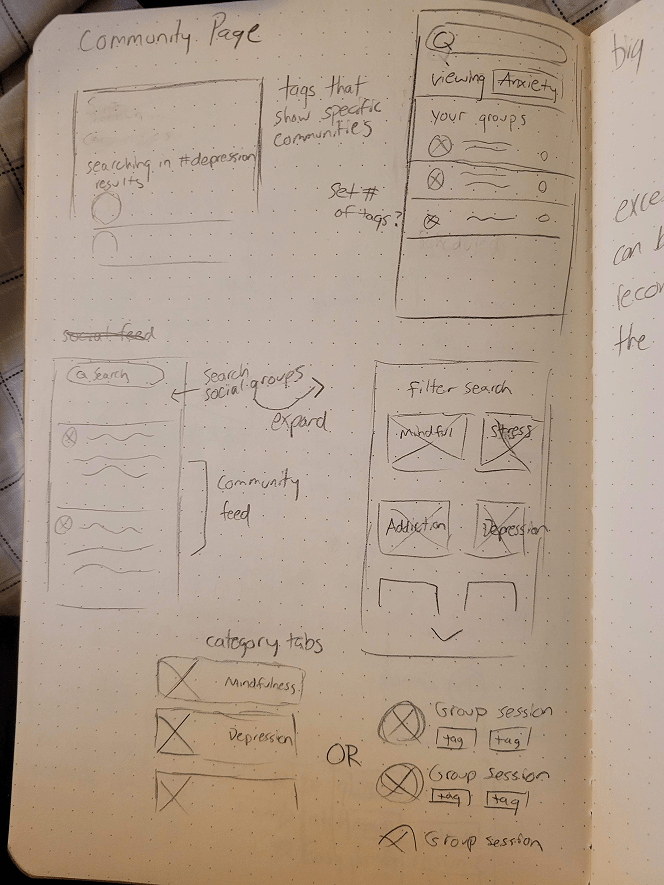 Community Page
searching in #depression
results
tags that
show specific
communities
Set #
of tags?
Viewing Anxiety
Your groups
social feed
Search
Search
social groups
expand
Community
feed
filter search
Mindful Stress
Addiction Depression
category tabs
Mindfulness
Depression
OR
Group session
tag tag
Group session
tag tag
Group session
big
can
the